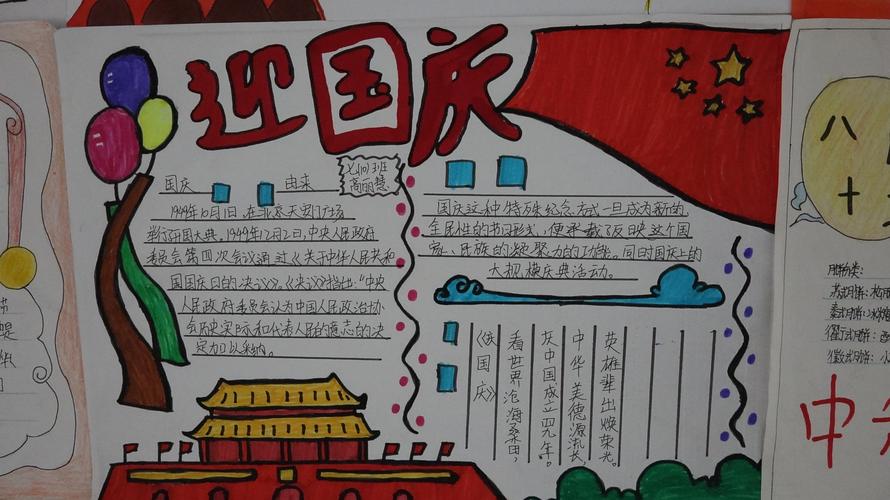 迎国庆
七(10)班
高丽慧
国庆 由来
1949年10月1日,在北京天安门广场
举行开国大典。1949年12月2日,中央人民政府
委员会第四次会议通过《关于中华人民共和
国国庆日的决议》。《决议》指出:"中央
人民政府委员会认为中国人民政治协
会历史实际和代表人民的意志的决
定加以采纳。
国庆这种特殊纪念方式一旦成为新的、
全民性的节日形式,便承载了反映这个国
家、民族的凝聚力的功能。同时国庆上的
大规模庆典活动。
英雄辈出焕荣光。
中华美德源流长,
庆中国成立四九年。
看世界沧海桑田,
《庆国庆》
八
十
月饼分类:
中